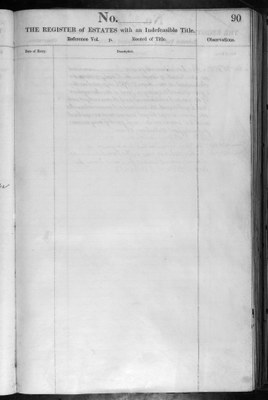 No. 90
THE REGISTER of ESTATES with an Indefeasible Title.
Reference Vol. p. Record of Title. Observations.
Date of Entry.